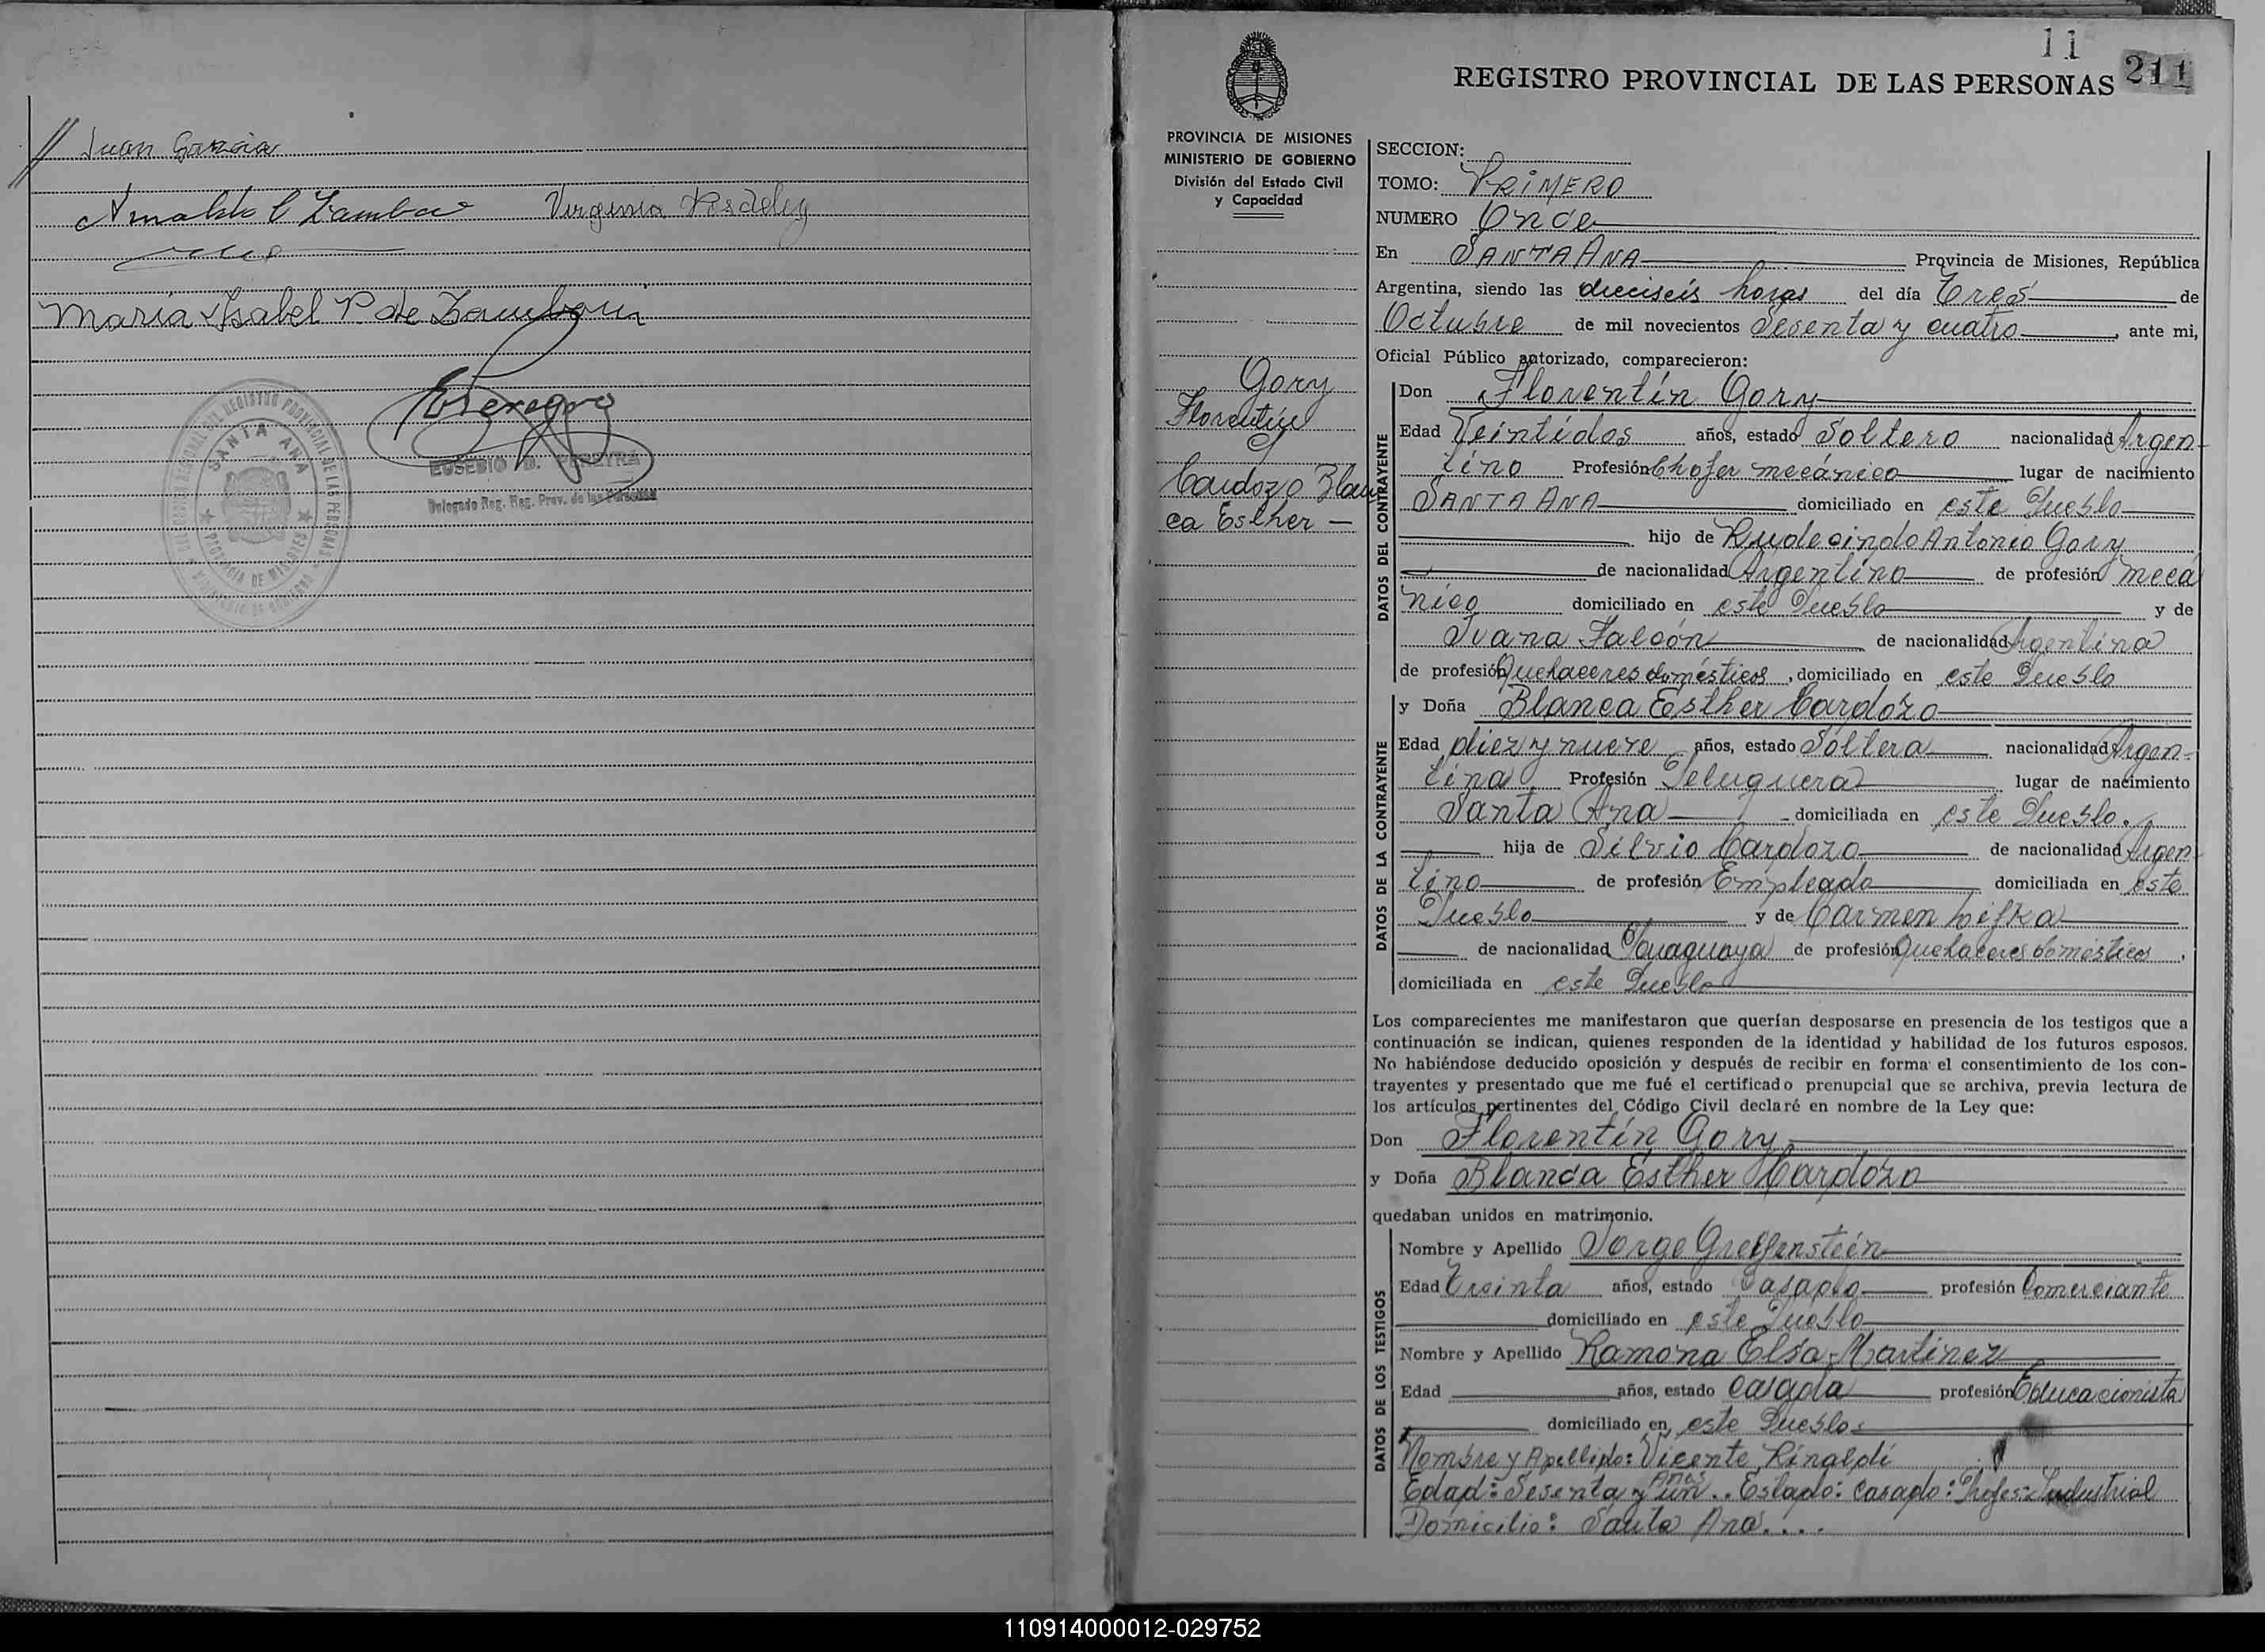 // Juan Garcia
Arnaldo C Zambon Virginia
Maria Ysabel P. de Zamboni
EUSEBIO D. PEREYRA
Delegado Reg. Reg. Prov. de las Personas
SANTA ANA
PROVINCIA DE MISIONES
11
REGISTRO PROVINCIAL DE LAS PERSONAS 211
PROVINCIA DE MISIONES
MINISTERIO DE GOBIERNO
División del Estado Civil
y Capacidad
Gory
Florentín
y
Cardozo Blan
ca Esther —
SECCION:
TOMO: PRIMERO
NUMERO Once
En SANTA ANA Provincia de Misiones, República
Argentina, siendo las dieciseis horas del día Tres de
Octubre de mil novecientos Sesenta y cuatro, ante mi,
Oficial Público autorizado, comparecieron:
DATOS DEL CONTRAYENTE
Don Florentín Gory
Edad Veintidos años, estado Soltero nacionalidad Argen-
tino Profesión Chofer mecánico lugar de nacimiento
SANTA ANA domiciliado en este Pueblo
hijo de Rudecindo Antonio Gory
de nacionalidad Argentino de profesión mecá
nico domiciliado en este Pueblo y de
Juana Falcón de nacionalidad Argentina
de profesión Quehaceres domésticos, domiciliado en este Pueblo
DATOS DE LA CONTRAYENTE
y Doña Blanca Esther Cardozo
Edad diez y nueve años, estado Soltera nacionalidad Argen-
tina Profesión Peluquera lugar de nacimiento
Santa Ana domiciliada en este Pueblo.
hija de Silvio Cardozo de nacionalidad Argen-
tino de profesión Empleado domiciliada en este
Pueblo y de Carmen Lifka
de nacionalidad Paraguaya de profesión Quehaceres domésticos,
domiciliada en este Pueblo
Los comparecientes me manifestaron que querían desposarse en presencia de los testigos que a
continuación se indican, quienes responden de la identidad y habilidad de los futuros esposos.
No habiéndose deducido oposición y después de recibir en forma el consentimiento de los con-
trayentes y presentado que me fué el certificado prenupcial que se archiva, previa lectura de
los artículos pertinentes del Código Civil declaré en nombre de la Ley que:
Don Florentín Gory
y Doña Blanca Esther Cardozo
quedaban unidos en matrimonio.
DATOS DE LOS TESTIGOS
Nombre y Apellido Jorge Greifenstein
Edad Treinta años, estado Casado profesión Comerciante
domiciliado en este Pueblo
Nombre y Apellido Ramona Elsa Martinez
Edad años, estado casada profesión Educacionista
domiciliado en este Pueblo
Nombre y Apellido: Vicente Rinaldi
Edad: Sesenta y un Años.. Estado: casado: Profes: Industrial
Domicilio: Santa Ana....
110914000012-029752